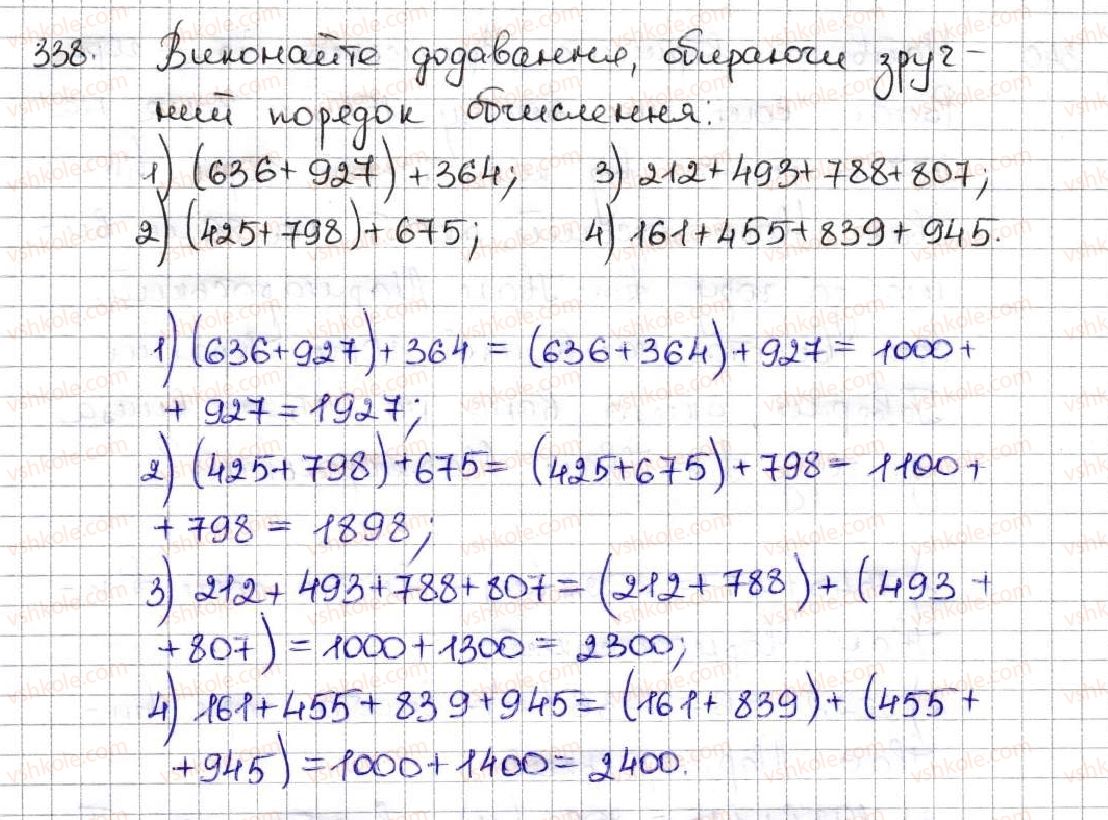 338. Виконайте додавання, обираючи зруч-
ний порядок обчислення:
1) (636+927)+364; 3) 212+493+788+807;
2) (425+798)+675; 4) 161+455+839+945.
1) (636+927)+364 = (636+364)+927 = 1000+
+ 927 = 1927;
2) (425+798)+675 = (425+675)+798 = 1100+
+ 798 = 1898;
3) 212+493+788+807 = (212+788)+(493+
+807) = 1000+1300 = 2300;
4) 161+455+839+945 = (161+839)+(455+
+945) = 1000+1400 = 2400.
vshkole.com